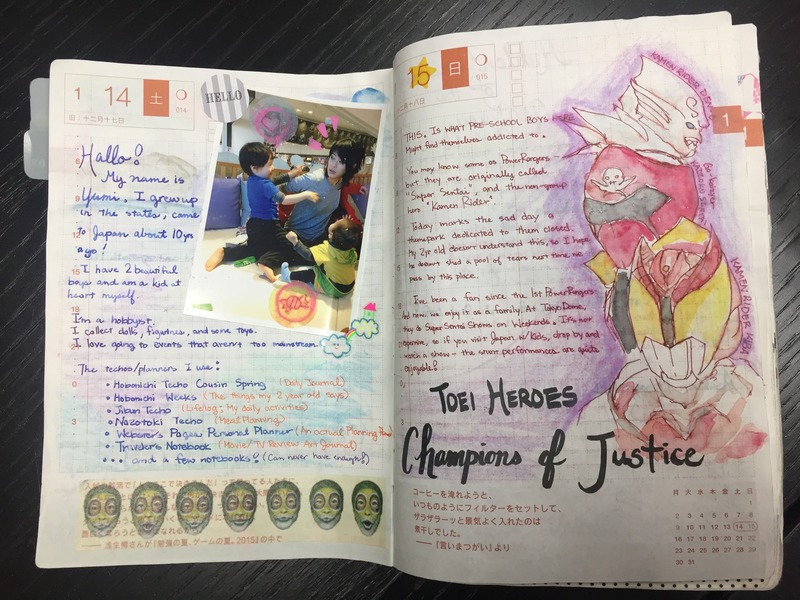 1 14 土
014
旧:十二月十七日
HELLO
Hallo!
My name is
Yumi. I grew up
in the states, came
to Japan about 10yrs
ago!
I have 2 beautiful
boys and am a kid at
heart myself.
I'm a hobbyist.
I collect dolls, figurines, and some toys.
I love going to events that aren't too mainstream.
The techos/planners I use:
• Hobonichi Techo Cousin Spring (Daily Journal)
• Hobonichi Weeks (The things my 2 year old says)
• Jibun Techo (Lifelog, My daily activities)
• Nazotoki Techo (Meal Planning)
• Webster's Pages Personal Planner (An actual Planning
• Traveler's Notebook (Movie/TV Review Art Journal)
• ... and a few notebooks! (Can never have enough!)
『勉強の夏、ゲームの夏。2015』の中で
15 日
015
THIS. IS WHAT PRE-SCHOOL BOYS HERE
Might find themselves addicted to.
You may know some as Power Rangers -
but they are originally called
"Super Sentai", and the non-group
hero "Kamen Rider"
Today marks the sad day a
themepark dedicated to them closed.
My 2yr old doesn't understand this, so I hope
he doesn't shed a pool of tears next time we
pass by this place.
I've been a fan since the 1st Power Rangers
And now we enjoy it as a family. At Tokyo Dome,
they do Super Sentai Shows on Weekends. It's not
expensive, so if you visit Japan w/ Kids, drop by and
watch a show - the stunt performances are quite
enjoyable!
KAMEN RIDER
KAMEN RIDER KIVA
1
TOEI HEROES
Champions of Justice
コーヒーを淹れようと、
いつものようにフィルターをセットして、
ザラザラーッと景気よく入れたのは
煮干しでした。
――『言いまつがい』より
月 火 水 木 金 土 日
1
2 3 4 5 6 7 8
9 10 11 12 13 14 15
16 17 18 19 20 21 22
23 24 25 26 27 28 29
30 31